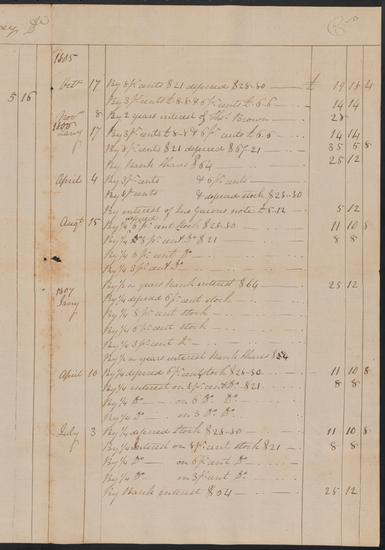 Dr Cr
1805
Octr 17 By 8 pr cents $21 deferred $28-80 £ 19 18 4
5 16 By 3 pr cents £8-8 & 6 pr cents £6-6 14 14
Novr 8 By 2 years interest of Thos Brown 28
1806
Jany 17 By 3 pr cents £8-8 & 6 pr cents £6-6 14 14
By 8 pr cents $21 deferred $67-21 35 5 8
By Bank Shares $64 25 12
April 4 By 3 pr cents & 6 pr cents
By 8 pr cents & deferd stock $28-80
By interest of note £5-12 5 12
Augt 15 By ¼ deferred 6 pr cent Stock $28-80 11 10 8
By ¼ Do 8 pr cent Do $21 8 8
By ¼ 6 pr cent Do
By ¼ 3 pr cent Do
By ½ a years bank interest $64 25 12
1807
Jany By ¼ deferred 6 pr cent stock
By ¼ 8 pr cent stock
By ¼ 6 pr cent stock
By ¼ 3 pr cent Do
By ½ a years interest bank Shares $64
April 10 By ¼ deferred 6 pr cent stock $28-80 11 10 8
By ¼ interest on 8 pr cent Do $21 8 8
By ¼ Do on 6 Do Do
By ¼ Do on 3 Do Do
July 3 By ¼ deferred stock $28-80 11 10 8
By ¼ interest on 8 pr cent stock $21 8 8
By ¼ Do on 6 pr cent Do
By ¼ Do on 3 pr cent Do
By Bank interest $64 25 12